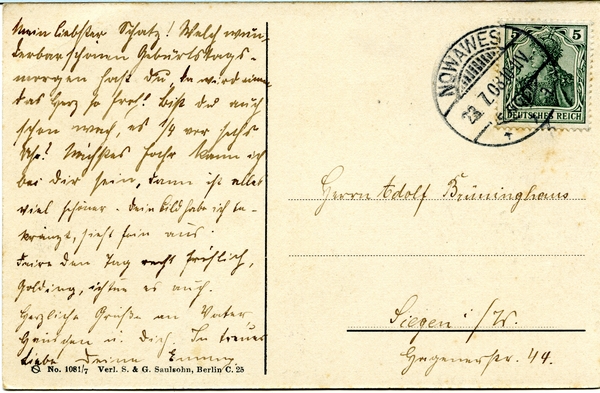 Mein liebster Schatz! Welch wun-
derbar schönen Geburtstags-
morgen hast Du, da wird einem
das Herz so froh! Bist du auch
schon wach, es 1/4 vor sechs
Uhr! Nächstes Jahr kann ich
bei dir sein, dann ist alles
viel schöner. Dein Bild habe ich be-
kränzt, sieht fein aus.
Feire den Tag recht fröhlich,
Golding, ich tue es auch.
Herzliche Grüße an Vater
u. Dich. In treuer
Liebe Deine Emmy
No. 1081/7 Verl. S. & G. Saulsohn, Berlin C. 25
NOWAWES
23.7.09
5 5
DEUTSCHES REICH
Herrn Adolf Brüninghaus
Siegen i/W.
Hagenerstr. 44.